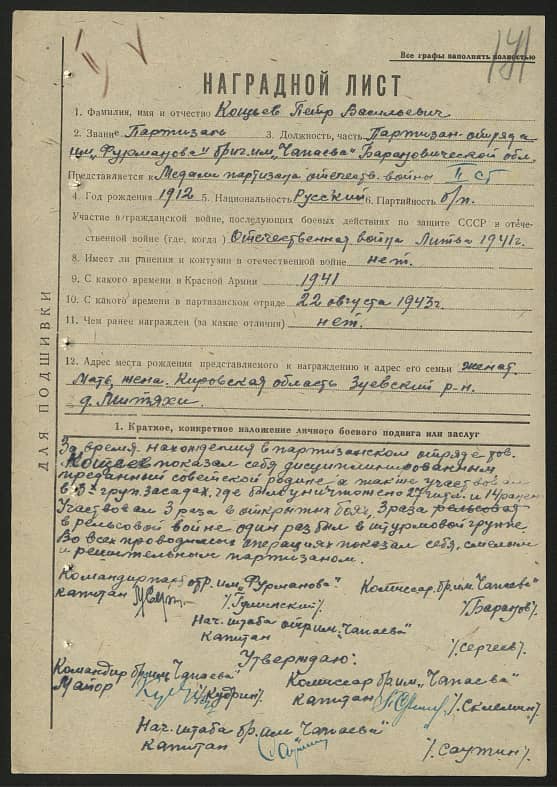 141
Все графы наполнять полностью
НАГРАДНОЙ ЛИСТ
1. Фамилия, имя и отчество Кощеев Петр Васильевич
2. Звание Партизан 3. Должность, часть Партизан отряда
им „Фурманова“ бриг. им. „Чапаева“ Барановической обл.
Представляется к Медали партизана отечеств. войны II ст
4. Год рождения 1912 5. Национальность Русский 6. Партийность б/п.
Участие в гражданской войне, последующих боевых действиях по защите СССР в отече-
ственной войне (где, когда) Отечественная война Литва 1941г.
8. Имеет ли ранения и контузии в отечественной войне нет.
9. С какого времени в Красной Армии 1941
10. С какого времени в партизанском отряде 22 августа 1943г.
11. Чем ранее награжден (за какие отличия) нет.
12. Адрес места рождения представляемого к награждению и адрес его семьи женат.
Мать, жена. Кировская область Зуевский р-н.
д. Митяхи.
ДЛЯ ПОДШИВКИ
1. Краткое, конкретное изложение личного боевого подвига или заслуг
За время нахождения в партизанском отряде тов.
Кощеев показал себя дисциплинированным
преданный советской родине а также участвовал
в засадах, где было уничтожено 27 гитл. и 14 ранен
Участвовал 3 раза в открытых боях, 3 раза рельсовая
в рельсовой войне один раз был в штурмовой группе.
Во всех проводимых операциях показал себя, смелым
и решительным партизаном.
Командир парт отр. им. „Фурманова“ Комиссар бр. им. „Чапаева“
капитан /Гуминский/. /Баранов/.
Нач. штаба отр. им. „Чапаева“
капитан /Сергеев/.
Утверждаю:
Командир бр. им „Чапаева“ Комиссар бр. им. „Чапаева“
Майор /Кудрин/. капитан /Склемин/.
Нач. штаба бр. им „Чапаева“
капитан /Саутин/.